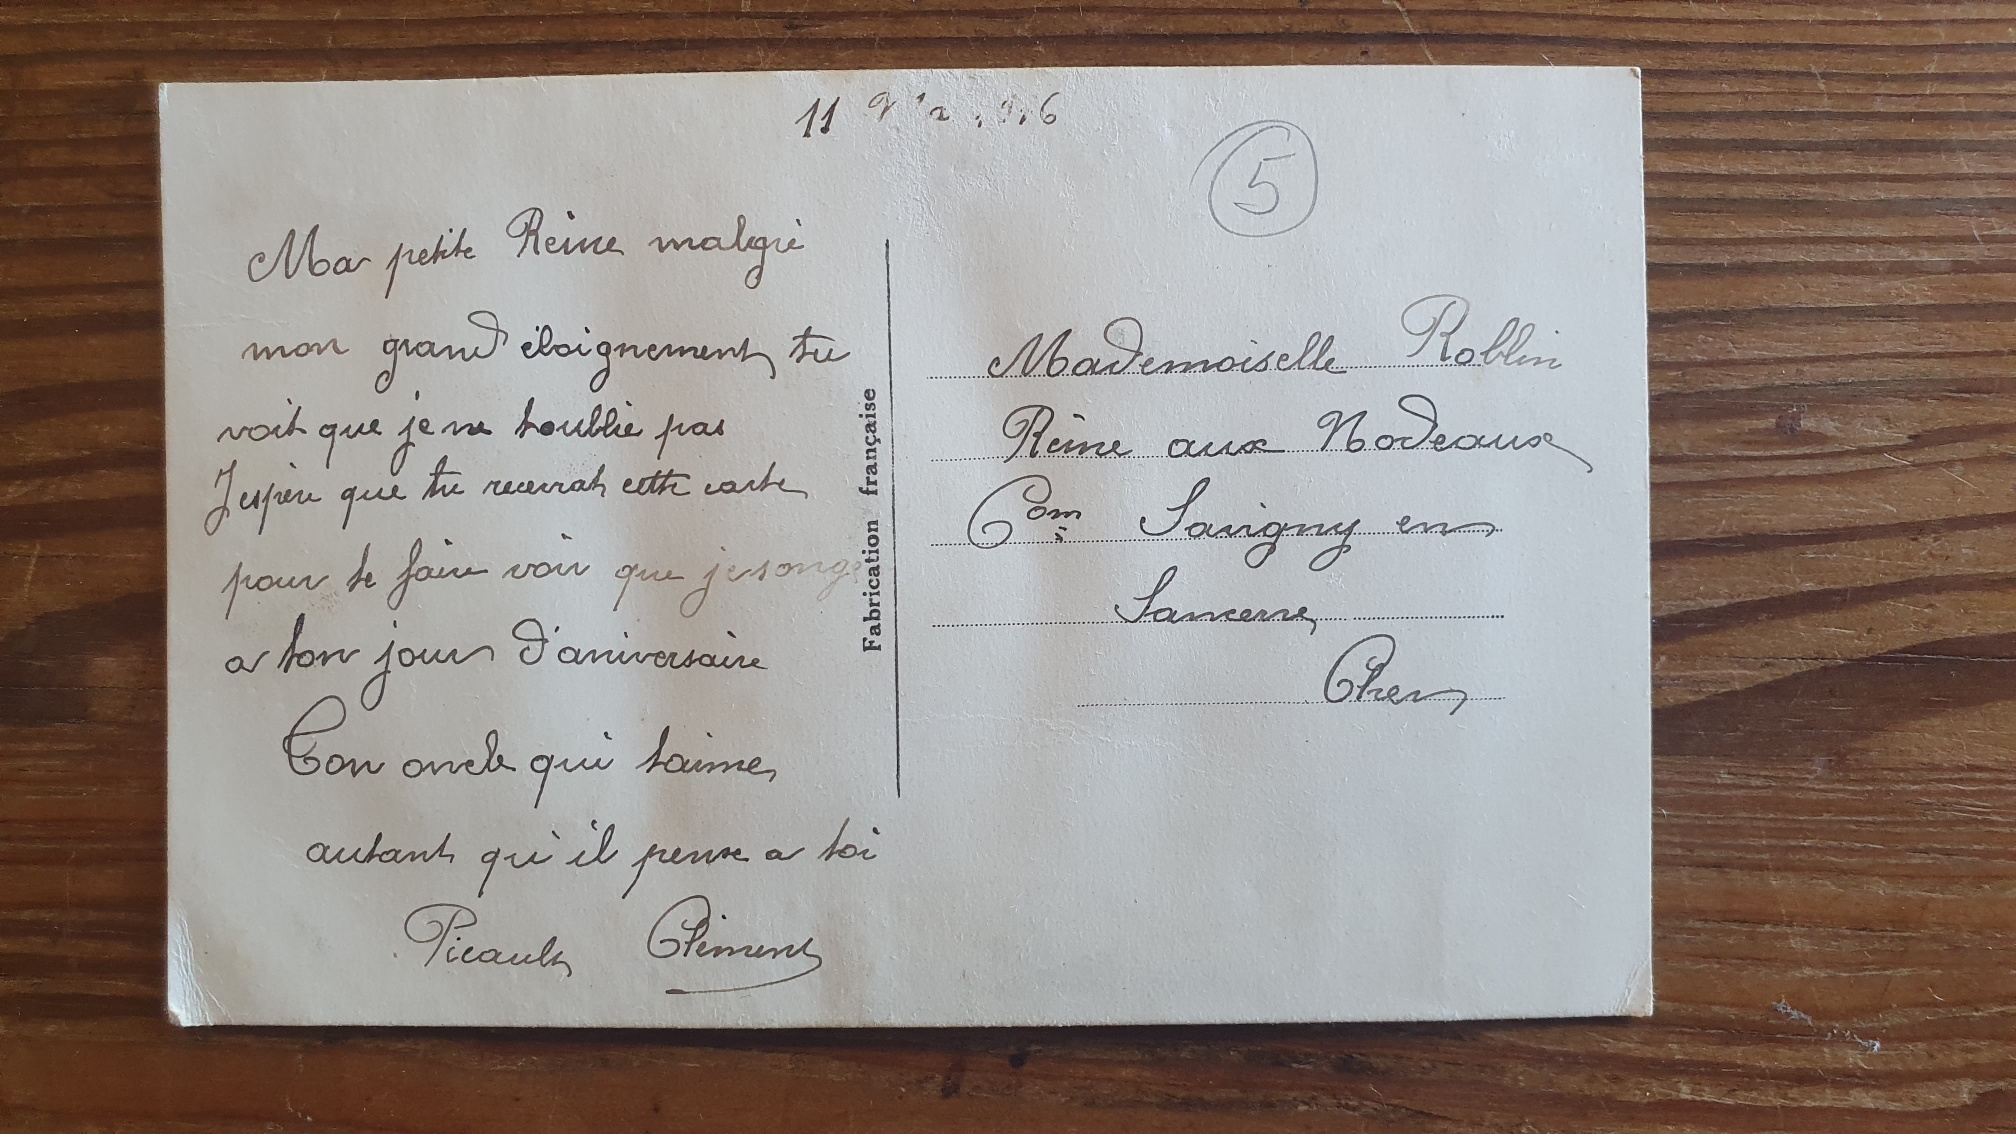 11
5
Ma petite Reine malgré
mon grand éloignement tu
voit que je ne toublie pas
J'espère que tu recevrat cette carte
pour te faire voir que je songe
a ton jour d'aniversaire
Ton oncle qui taime
autant qu'il pense a toi
Picault Clément
Fabrication française
Mademoiselle Roblin
Reine aux Nodeaux
Com Savigny en
Sancerre
Cher